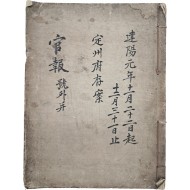 建陽元年十一月二十二日起
十二月三十一日止
定州府存案
官報 號外并